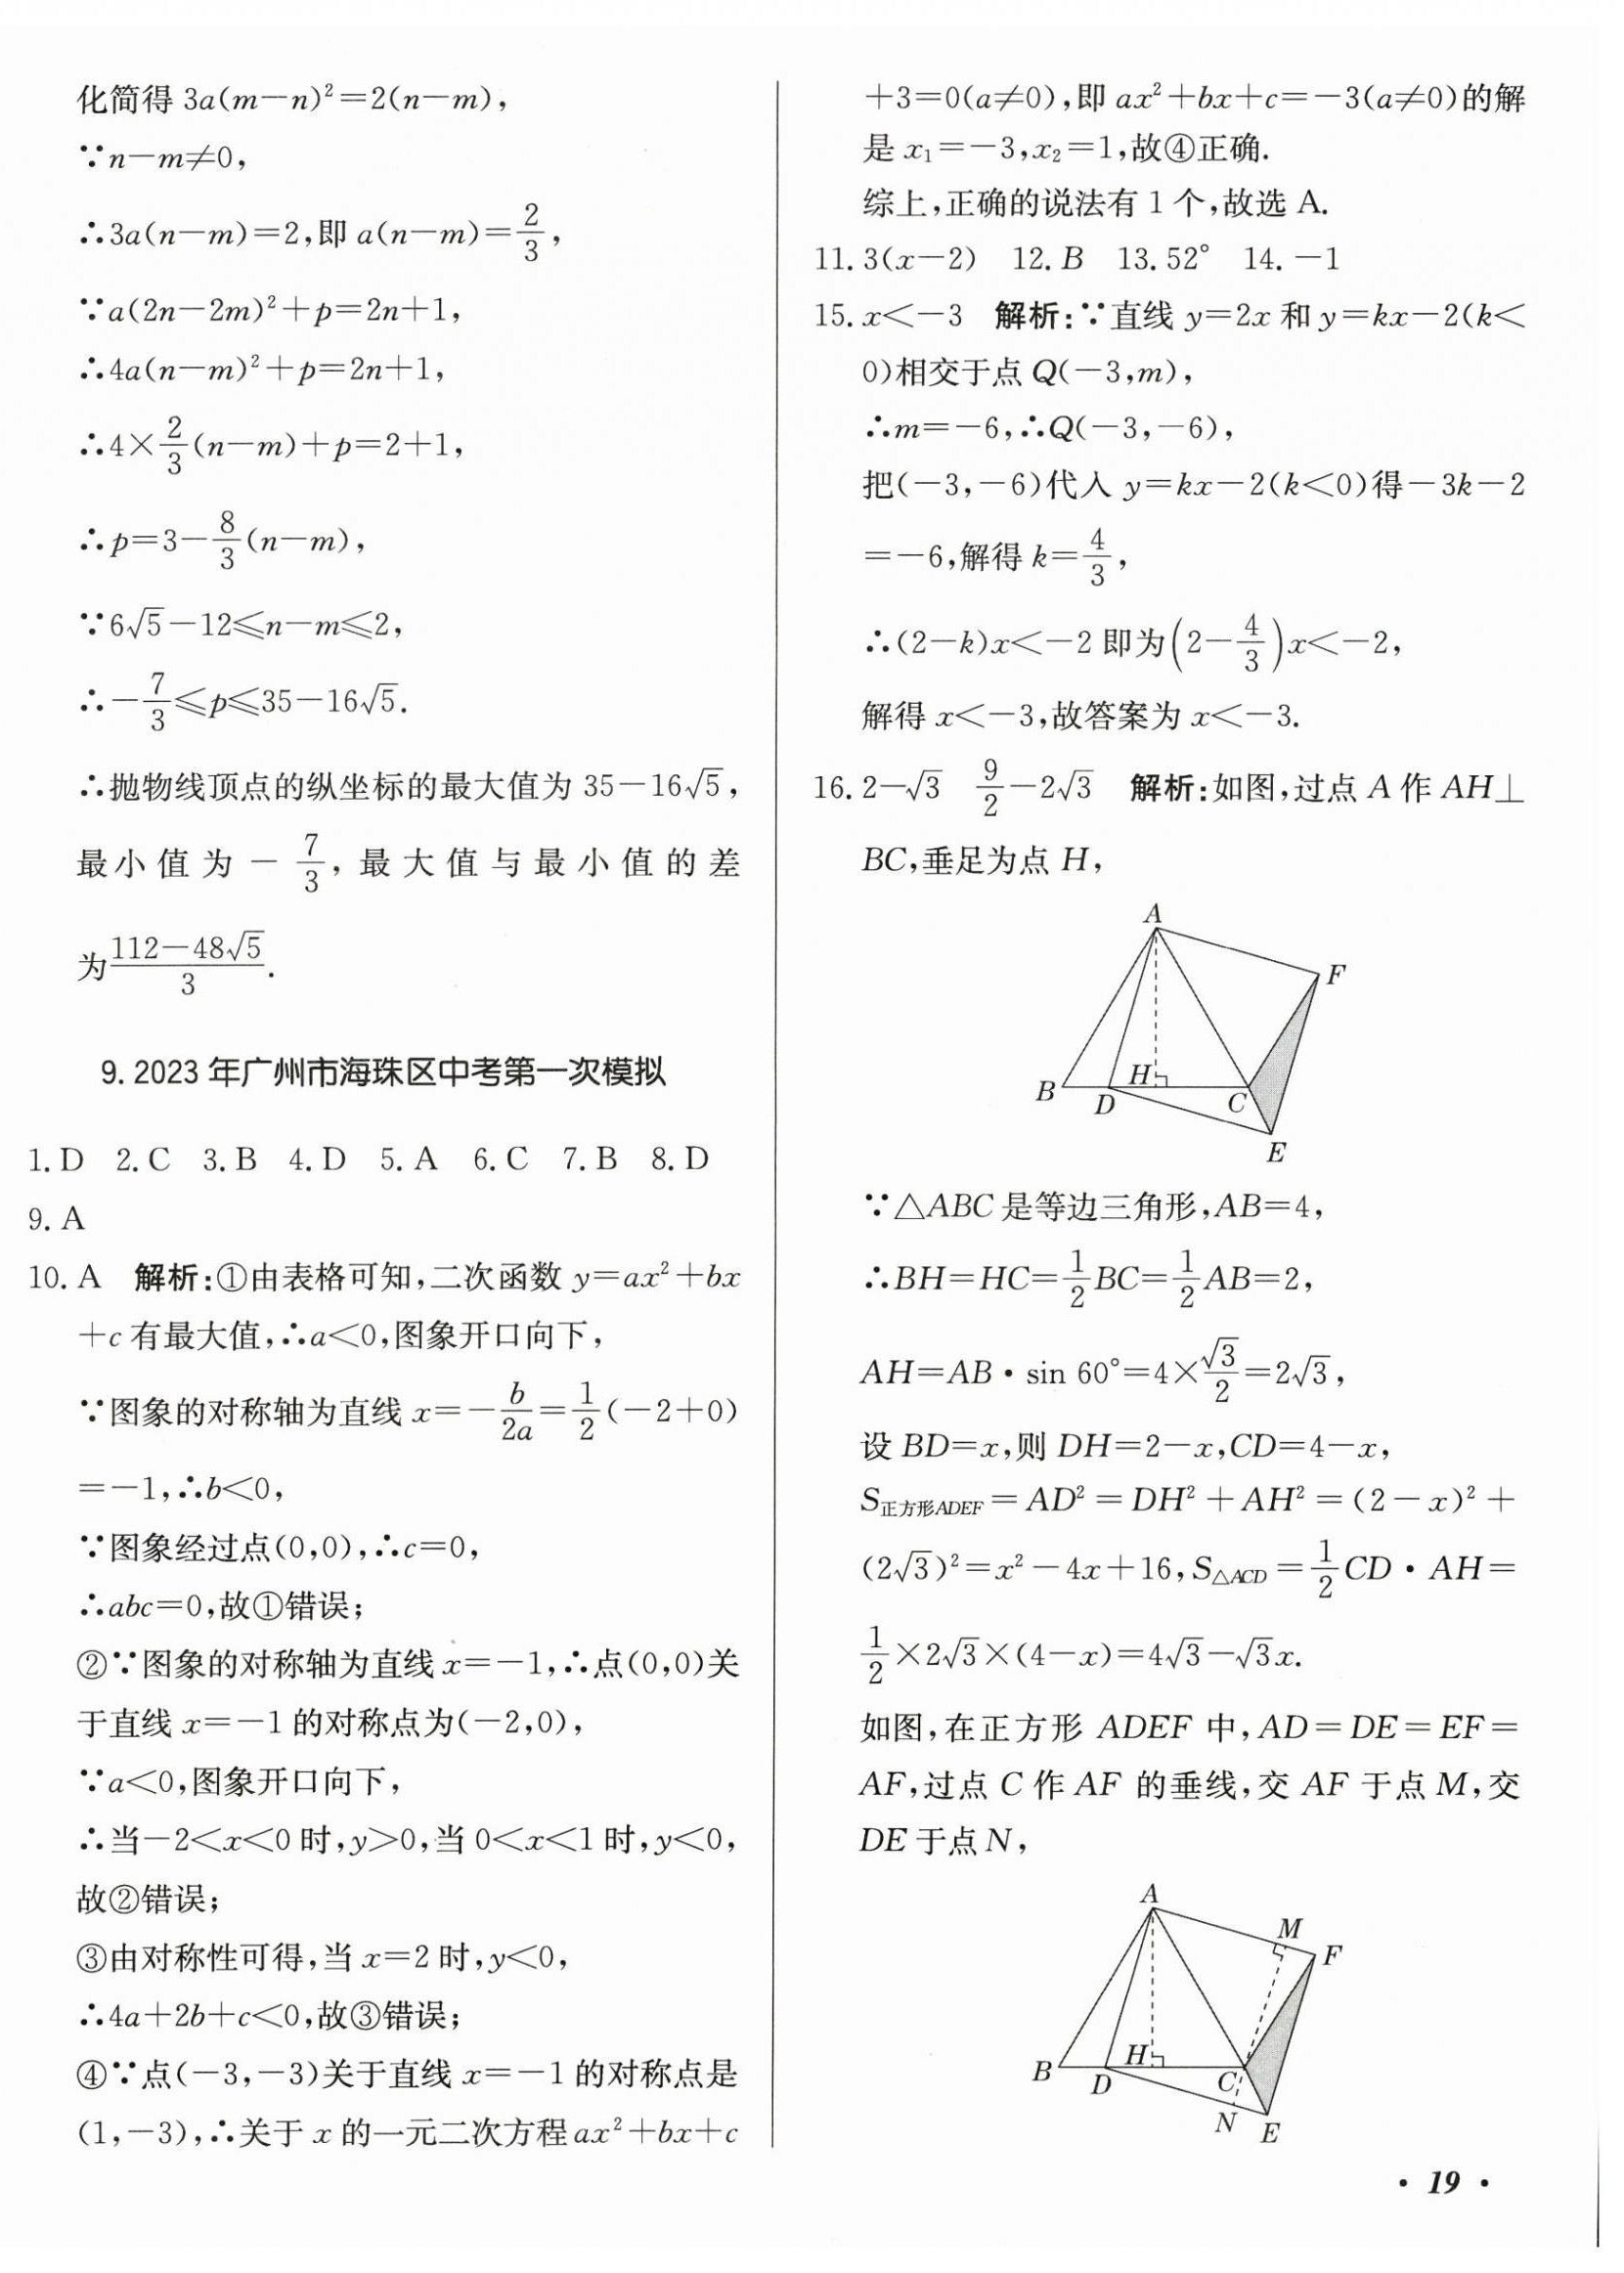 化简得 3a(m－n)²＝2(n－m)，
∵n－m≠0，
∴3a(n－m)＝2，即 a(n－m)＝2/3，
∵a(2n－2m)²＋p＝2n＋1，
∴4a(n－m)²＋p＝2n＋1，
∴4×2/3(n－m)＋p＝2＋1，
∴p＝3－8/3(n－m)，
∵6√5－12≤n－m≤2，
∴－7/3≤p≤35－16√5.
∴抛物线顶点的纵坐标的最大值为 35－16√5，
最小值为－7/3，最大值与最小值的差
为(112－48√5)/3.
9. 2023 年广州市海珠区中考第一次模拟
1. D 2. C 3. B 4. D 5. A 6. C 7. B 8. D
9. A
10. A 解析：①由表格可知，二次函数 y＝ax²＋bx
＋c 有最大值，∴a＜0，图象开口向下，
∵图象的对称轴为直线 x＝－b/2a＝1/2(－2＋0)
＝－1，∴b＜0，
∵图象经过点(0,0)，∴c＝0，
∴abc＝0，故①错误；
②∵图象的对称轴为直线 x＝－1，∴点(0,0)关
于直线 x＝－1 的对称点为(－2,0)，
∵a＜0，图象开口向下，
∴当－2＜x＜0 时，y＞0，当 0＜x＜1 时，y＜0，
故②错误；
③由对称性可得，当 x＝2 时，y＜0，
∴4a＋2b＋c＜0，故③错误；
④∵点(－3，－3)关于直线 x＝－1 的对称点是
(1，－3)，∴关于 x 的一元二次方程 ax²＋bx＋c
＋3＝0(a≠0)，即 ax²＋bx＋c＝－3(a≠0)的解
是 x₁＝－3，x₂＝1，故④正确.
综上，正确的说法有 1 个，故选 A.
11. 3(x－2) 12. B 13. 52° 14. －1
15. x＜－3 解析：∵直线 y＝2x 和 y＝kx－2(k＜
0)相交于点 Q(－3，m)，
∴m＝－6，∴Q(－3，－6)，
把(－3，－6)代入 y＝kx－2(k＜0)得－3k－2
＝－6，解得 k＝4/3，
∴(2－k)x＜－2 即为(2－4/3)x＜－2，
解得 x＜－3，故答案为 x＜－3.
16. 2－√3 9/2－2√3 解析：如图，过点 A 作 AH⊥
BC，垂足为点 H，
A
F
B
D
H
C
E
∵△ABC 是等边三角形，AB＝4，
∴BH＝HC＝1/2BC＝1/2AB＝2，
AH＝AB·sin 60°＝4×√3/2＝2√3，
设 BD＝x，则 DH＝2－x，CD＝4－x，
S正方形ADEF＝AD²＝DH²＋AH²＝(2－x)²＋
(2√3)²＝x²－4x＋16，S△ACD＝1/2CD·AH＝
1/2×2√3×(4－x)＝4√3－√3x.
如图，在正方形 ADEF 中，AD＝DE＝EF＝
AF，过点 C 作 AF 的垂线，交 AF 于点 M，交
DE 于点 N，
A
M
F
B
D
H
C
N
E
· 19 ·